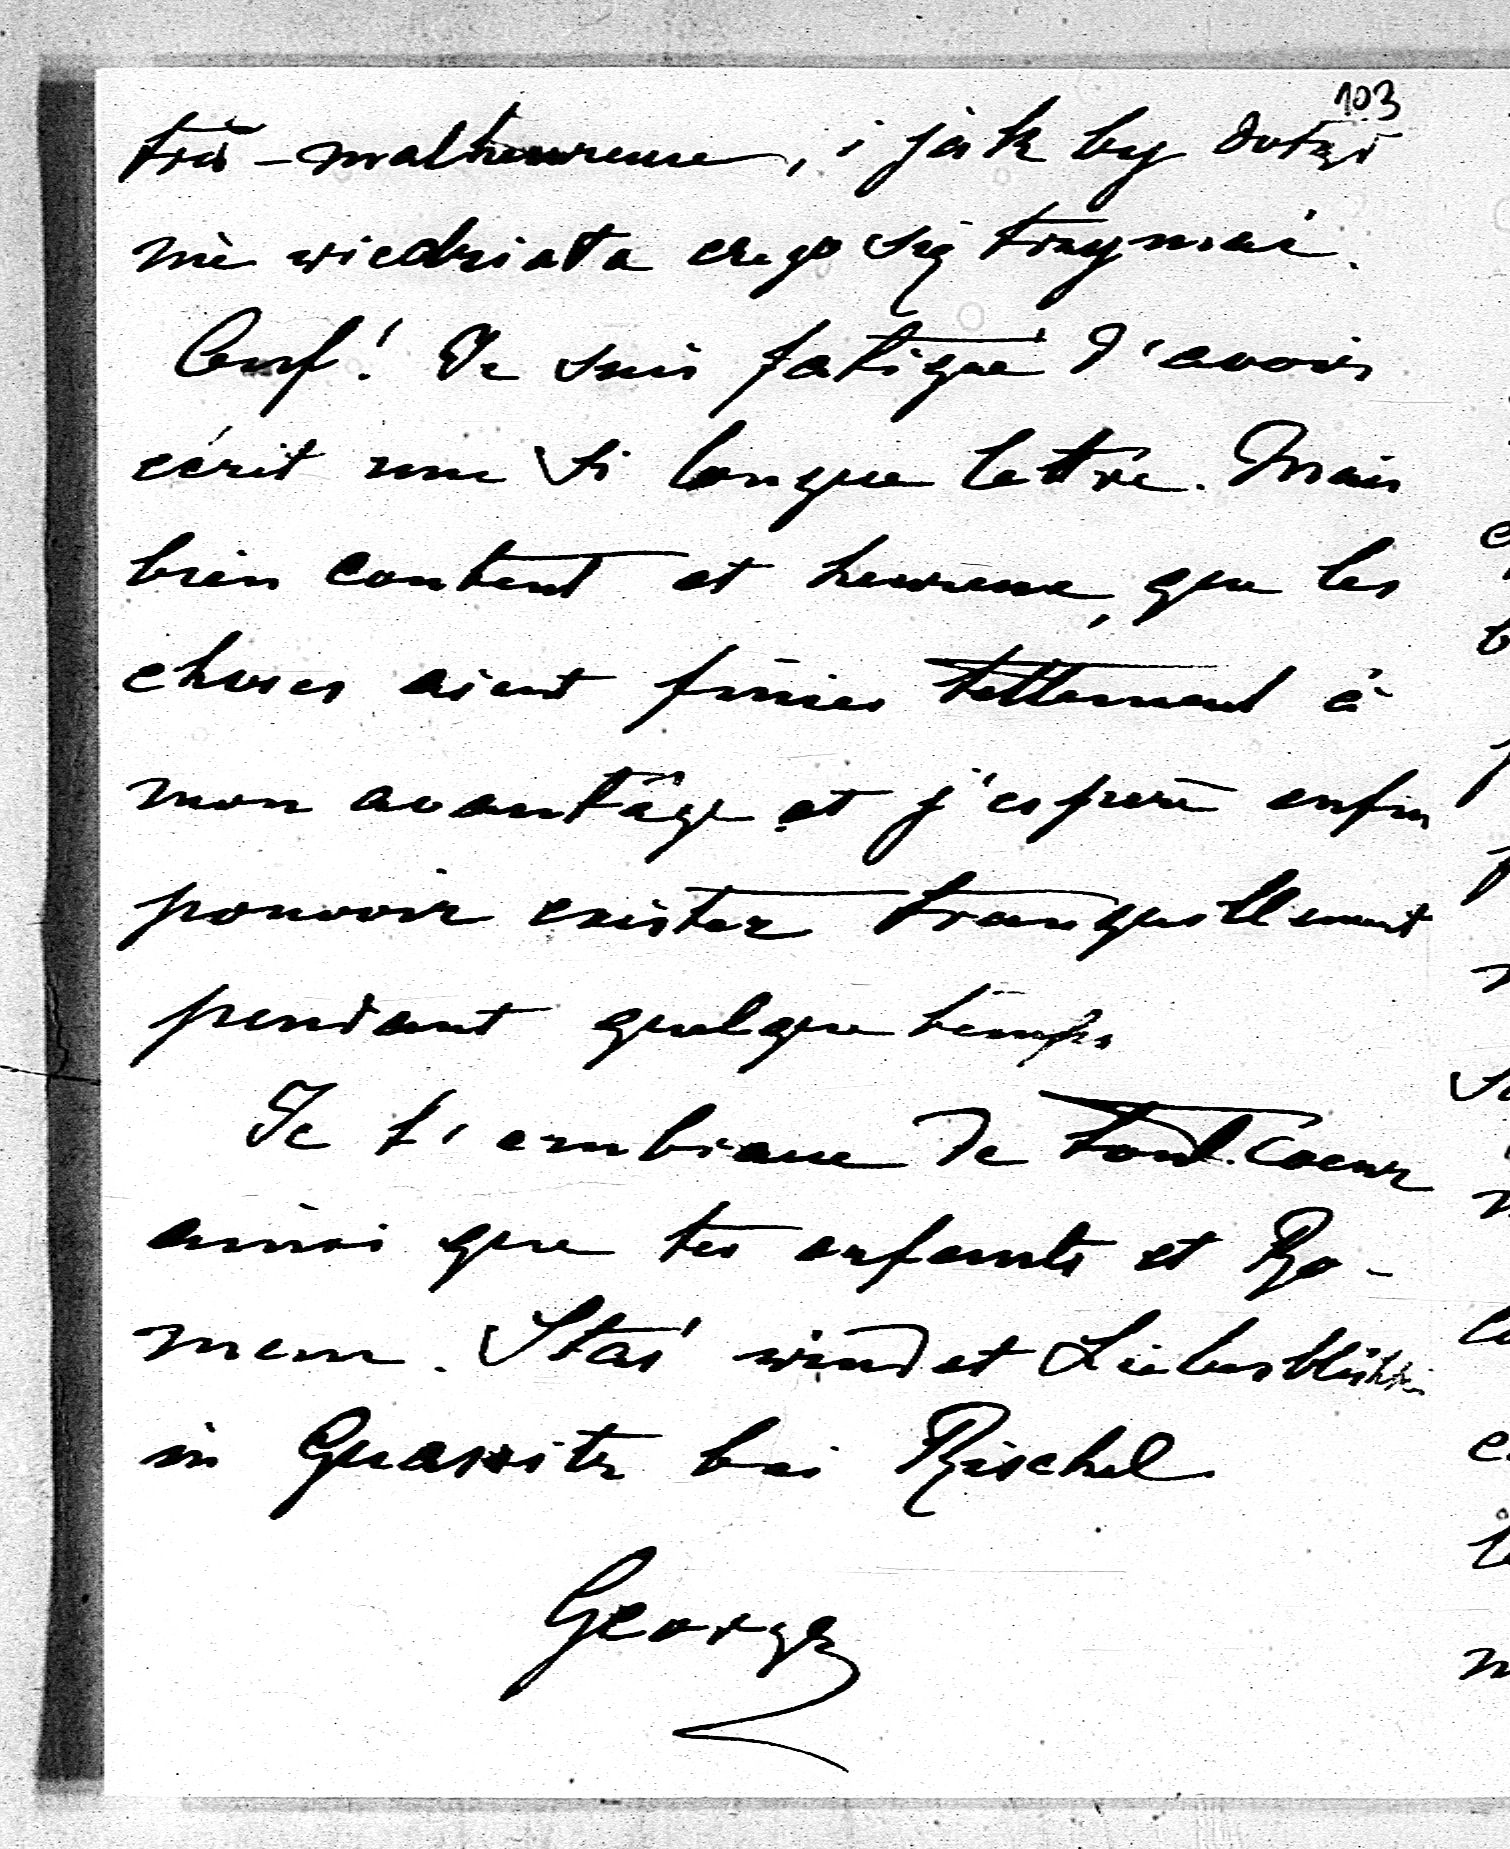 103
très-malheureuse, i jak by dotąd
nie wiedziała czego się trzymać.
Ouf! Je suis fatigué d'avoir
écrit une si longue lettre. Mais
bien content et heureux, que les
choses aient finies tellement à
mon avantage et j'espère enfin
pouvoir exister tranquillement
pendant quelque temps
Je t'embrasse de tout coeur
ainsi que tes enfants et Ro-
mem. Staś windet
in Quassitz bei Rischel.
George